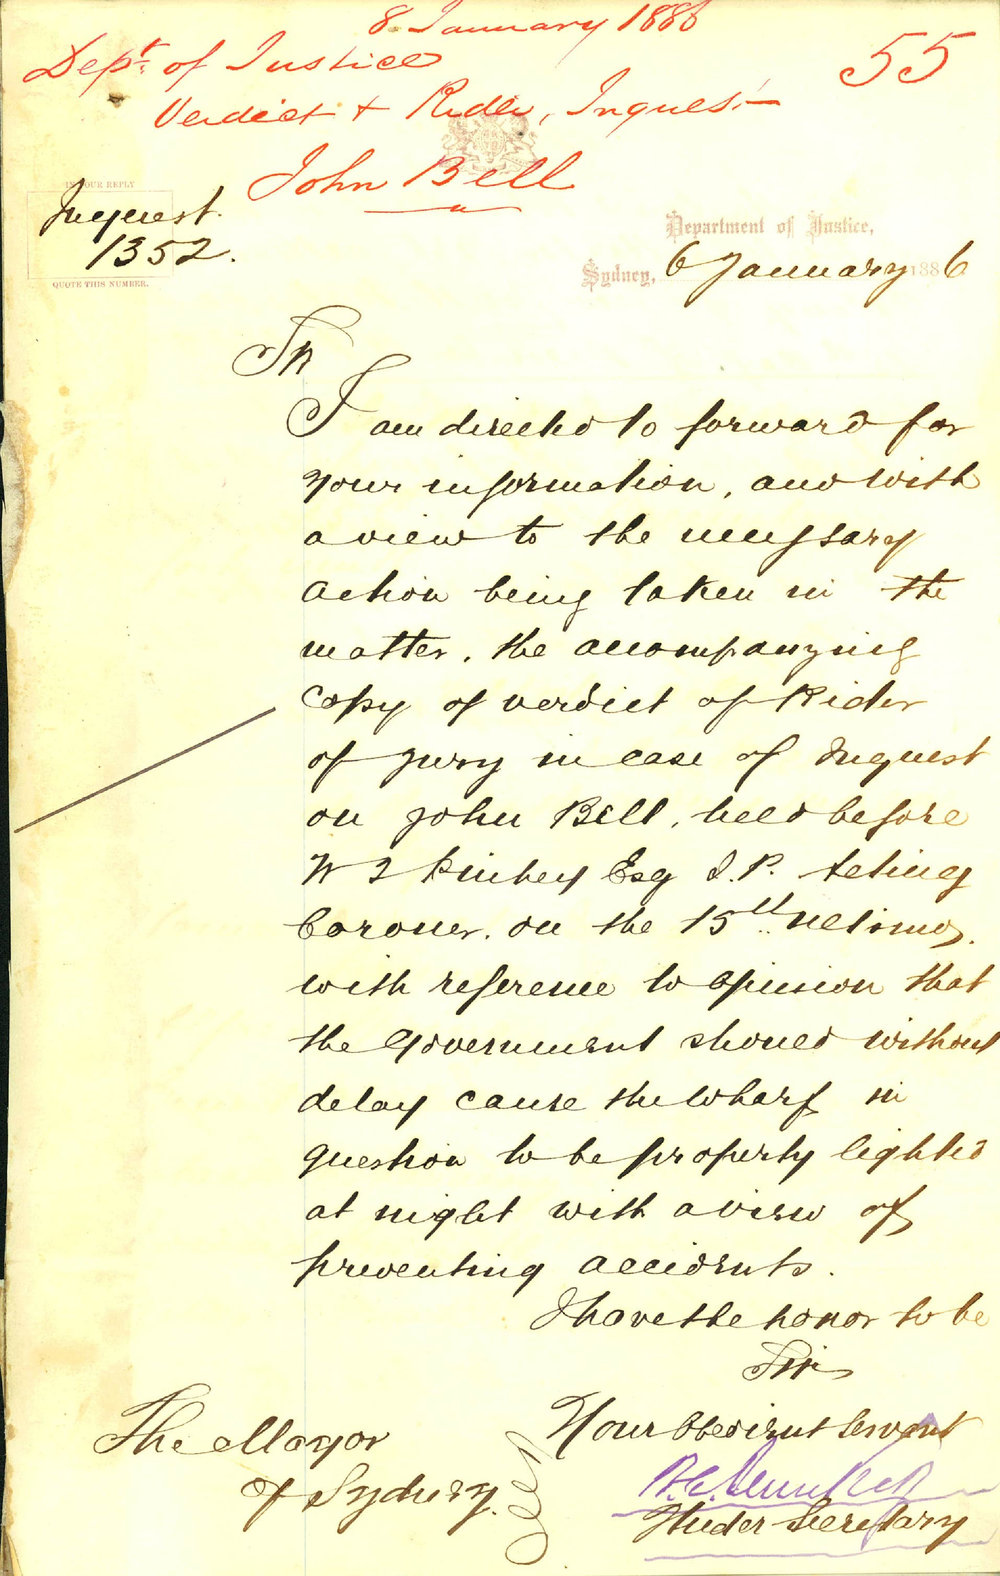 8 January 1886
55
Dept. of Justice
Verdict & Rider, Inquest
John Bell
IN YOUR REPLY
Inquest.
1352.
QUOTE THIS NUMBER.
Department of Justice,
Sydney, 6 January 1886
Sir
I am directed to forward for
your information, and with
a view to the necessary
action being taken in the
matter, the accompanying
copy of verdict of Rider
of jury in case of Inquest
on John Bell, held before
Esq J.P. Acting
Coroner. on the 15th ultimo,
with reference to opinion that
the Government should without
delay cause the Wharf in
question to be properly lighted
at night with a view of
preventing accidents.
I have the honor to be
Sir
Your Obedient Servant
Under Secretary
The Mayor
of Sydney.